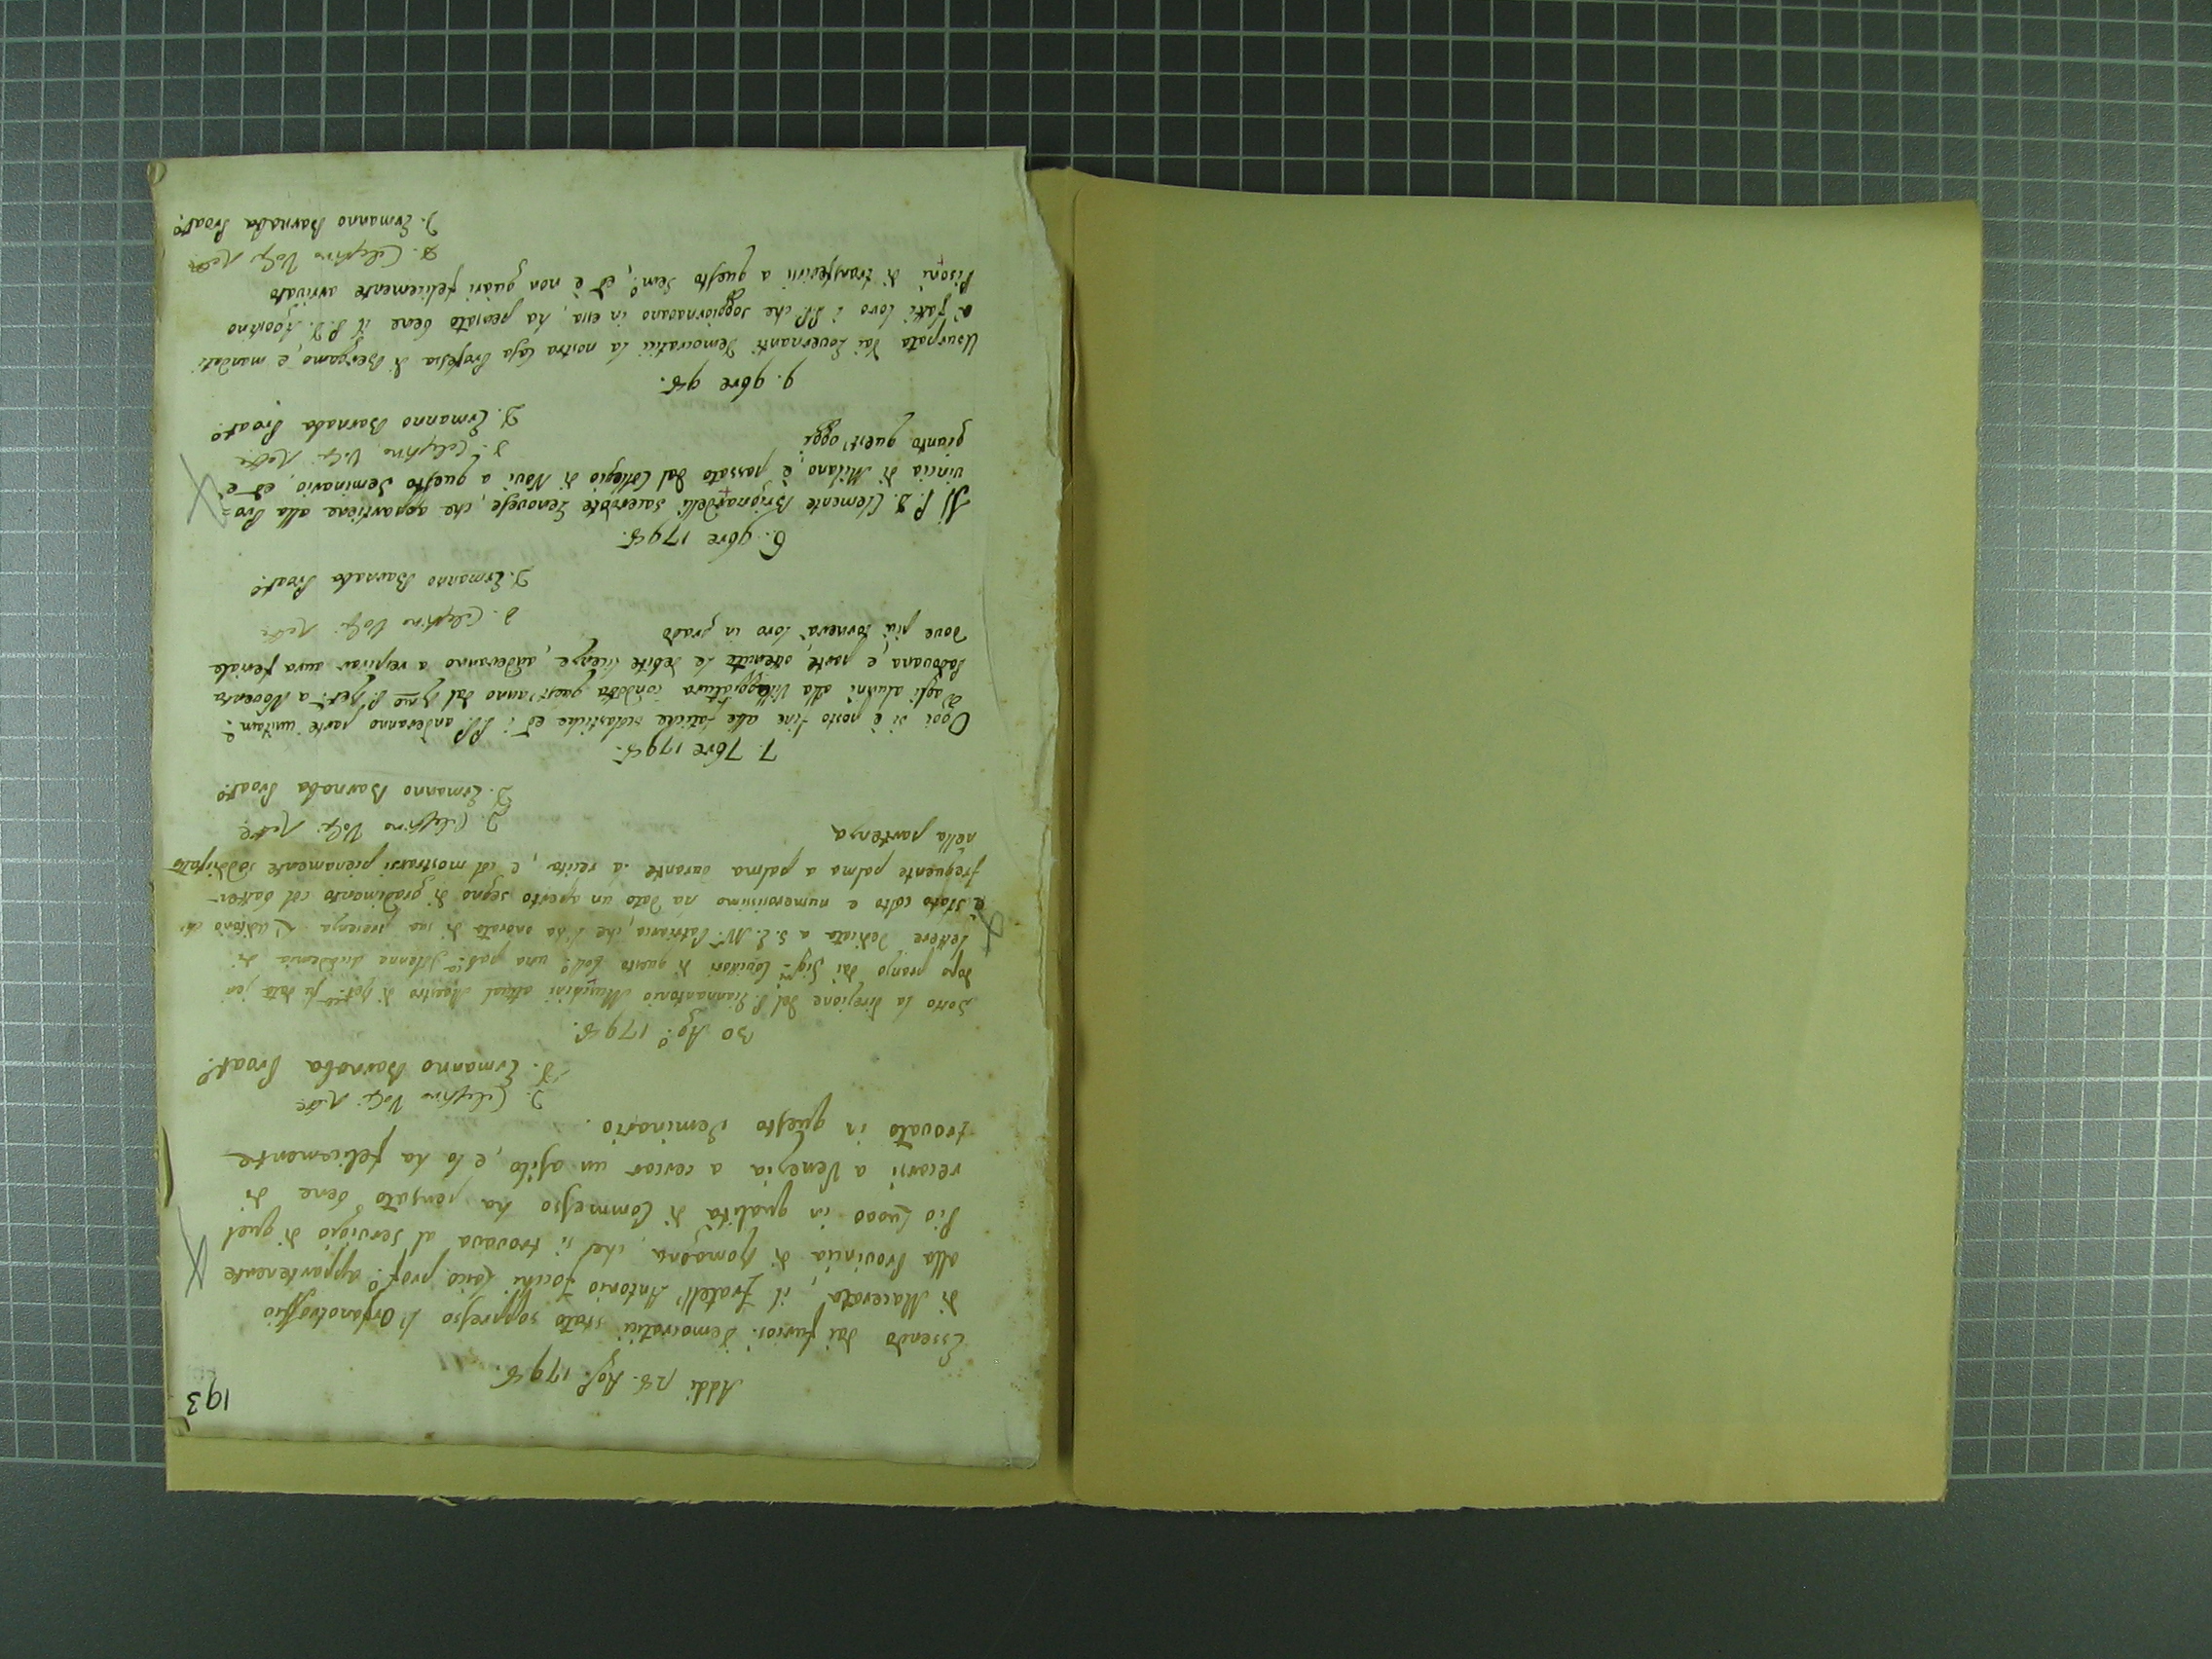 193
Addi 28. Ago. 1798.
Essendo dai furiosi Democratici stato soppresso l'Orfanotroffio
di Macerata, il Fratell' Antonio Jocchi laico prof.o appartenente
alla Provincia di Romagna, che si trovava al servigio di quel
Pio Luogo in qualità di Commesso ha pensato bene di
recarsi a Venezia a cercar un asilo, e lo ha felicemente
trovato in questo Seminario.
D. Celestino Volpi Rett.e
D. Ermanno Barnaba Proat.o
30 Ag.o 1798.
Sotto la direzione del P. Giannantonio Muschini attual Maestro di Ret.ca fu data jeri
dopo pranzo dai Sig.ri Convittori di questo Coll.o una pub.ca solenne accademia di
lettere dedicata a S. E. M.r Patriarca, che l'ha onorata di sua presenza. L'uditorio ch'
è stato colto e numerosissimo ha dato un aperto segno di gradimento col batter
frequente palma a palma durante la recita, e col mostrarsi pienamente soddisfatto
nella partenza
D. Celestino Volpi Rett.e
D. Ermanno Barnaba Proat.o
7. 7bre 1798.
Oggi si è posto fine alle fatiche scolastiche ed i PP. anderanno parte unitam.e
agli alunni alla Villeggiatura condotta quest'anno dal P. Ret.e a Noventa
Padovana, e parte, ottenute le debite licenze, anderanno a respirar aura feriale
dove più tornerà loro in grado
D. Celestino Volpi Rett.e
D. Ermanno Barnaba Proat.o
6. 9bre 1798.
Il P. D. Clemente Brignardelli Sacerdote Genovese, che appartiene alla Pro=
vincia di Milano, è passato dal Collegio di Novi a questo Seminario, ed è
giunto quest'oggi
D. Celestino Volpi Rett.e
D. Ermanno Barnaba Proat.o
9. 9bre 98.
Usurpata dai Governanti Democratici la nostra Casa Professa di Bergamo, e mandati
a' fatti loro i PP. che soggiornavano in essa, ha pensato bene il P. D. Agostino
Pisoni di trasferirsi a questo Sem.o, ed è non guari felicemente arrivato
D. Celestino Volpi Rett.e
D. Ermanno Barnaba Proat.o